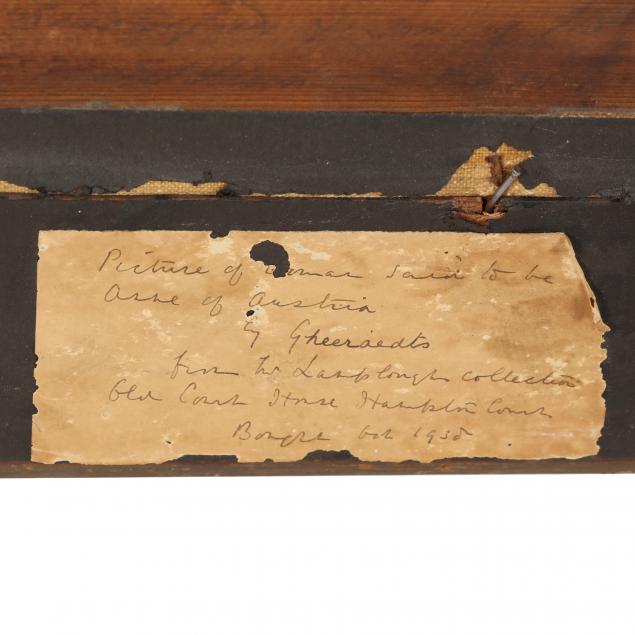 Picture of woman said to be
Ann of Austria
by Gheeraedts
from Mr Lamplough collection
Old Court House Hampton Court
Bought Oct 1938